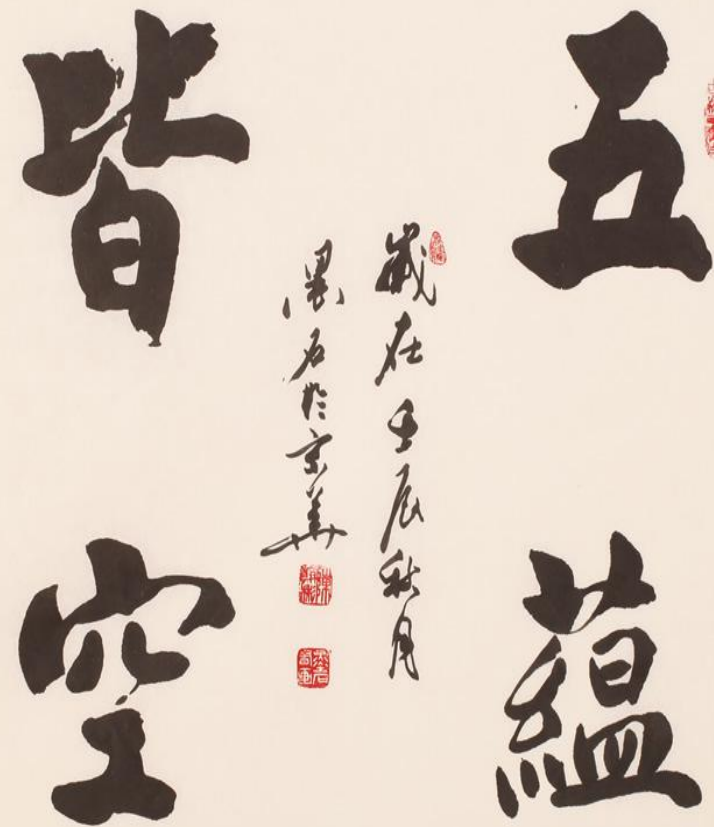 五藴
皆空
歲在壬辰秋月
墨石於京華